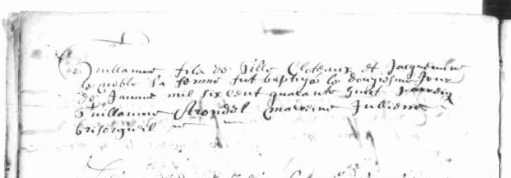 Guillaume fils de Gilles et Jacquemine
le noble sa femme fut baptisé le douziesme Jour
de Janvier mil six cent quarante huit parrein
Guillaume marreine Julienne